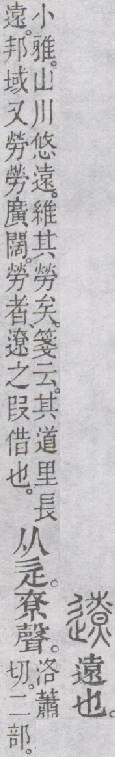 遼遠也。
小雅。山川悠遠。維其勞矣。箋云。其道里長
遠。邦域又勞勞廣闊。勞者、遼之叚借也。
从辵。尞聲。
洛蕭
切。二部。